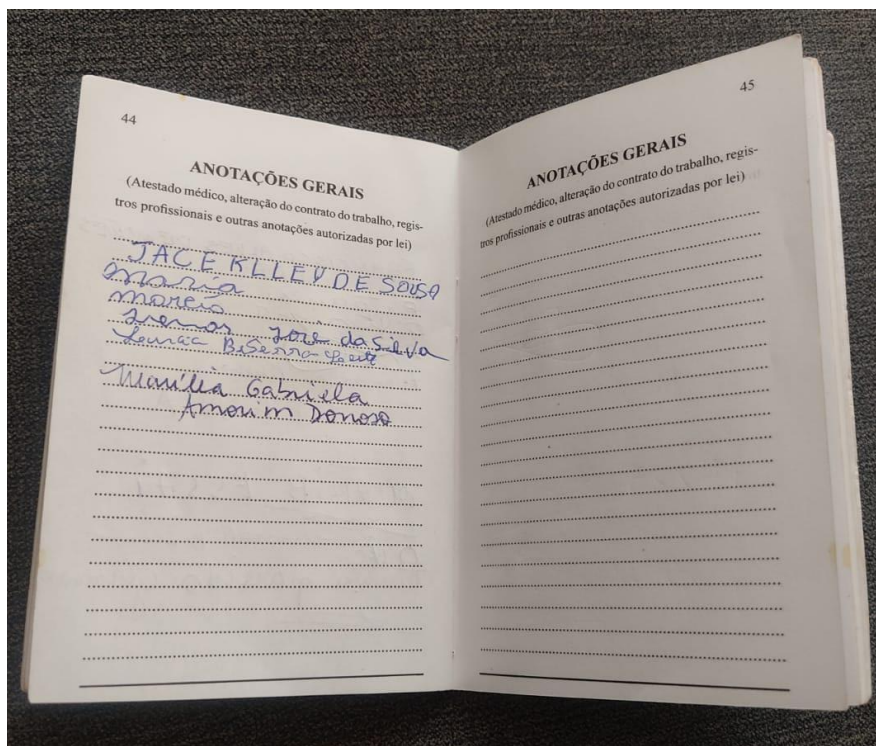 44
ANOTAÇÕES GERAIS
(Atestado médico, alteração do contrato do trabalho, regis-
tros profissionais e outras anotações autorizadas por lei)
JACEKLLEV DE SOUSA
Maria
José da Silva
Beserra Leite
Marília Gabriela
Amorim Donoso
45
ANOTAÇÕES GERAIS
(Atestado médico, alteração do contrato do trabalho, regis-
tros profissionais e outras anotações autorizadas por lei)